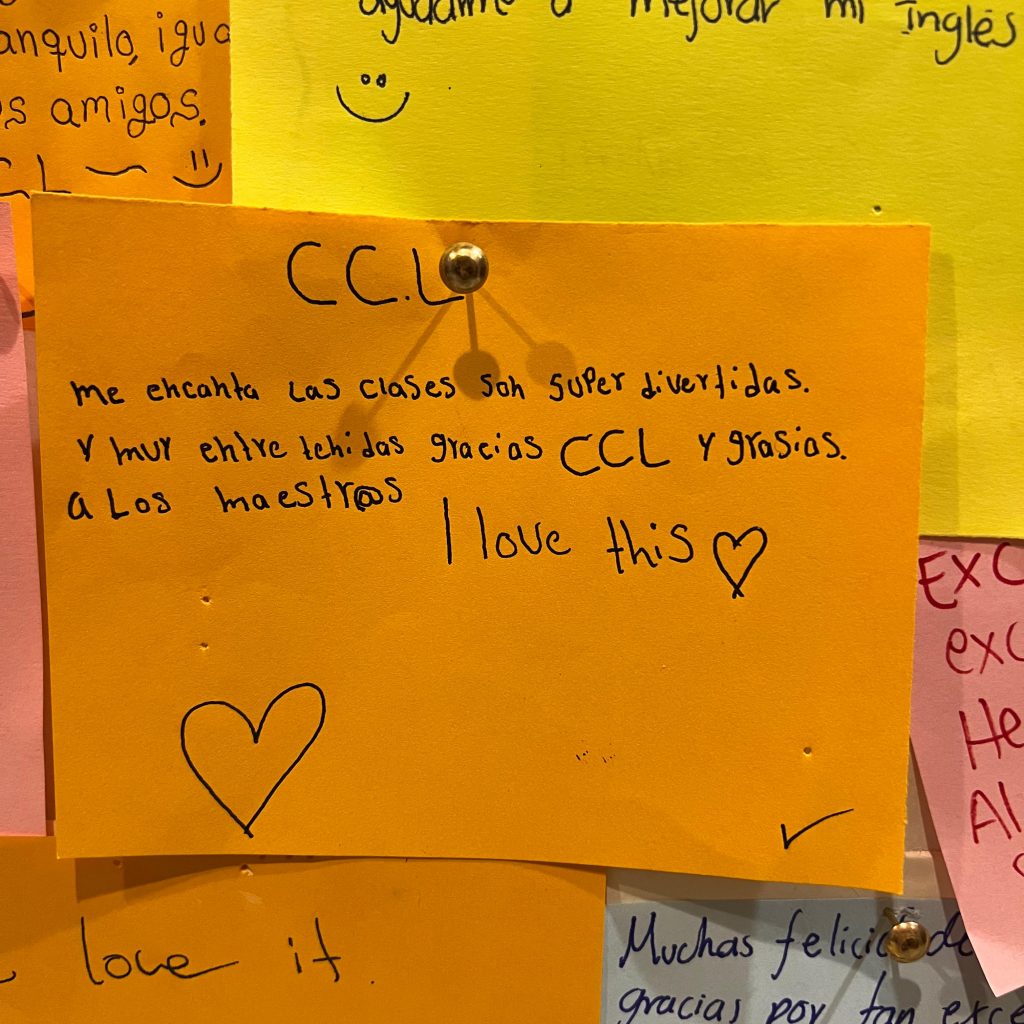 anquilo, igua
s amigos.
ayudarme a mejorar mi Inglés
CC.L
me encanta Las clases son super divertidas.
Y muy entretenidas gracias CCL y grasias.
a Los maestr@s
I love this
love it.
Muchas felicid
gracias por tan exce
Exc
exc
He
Al